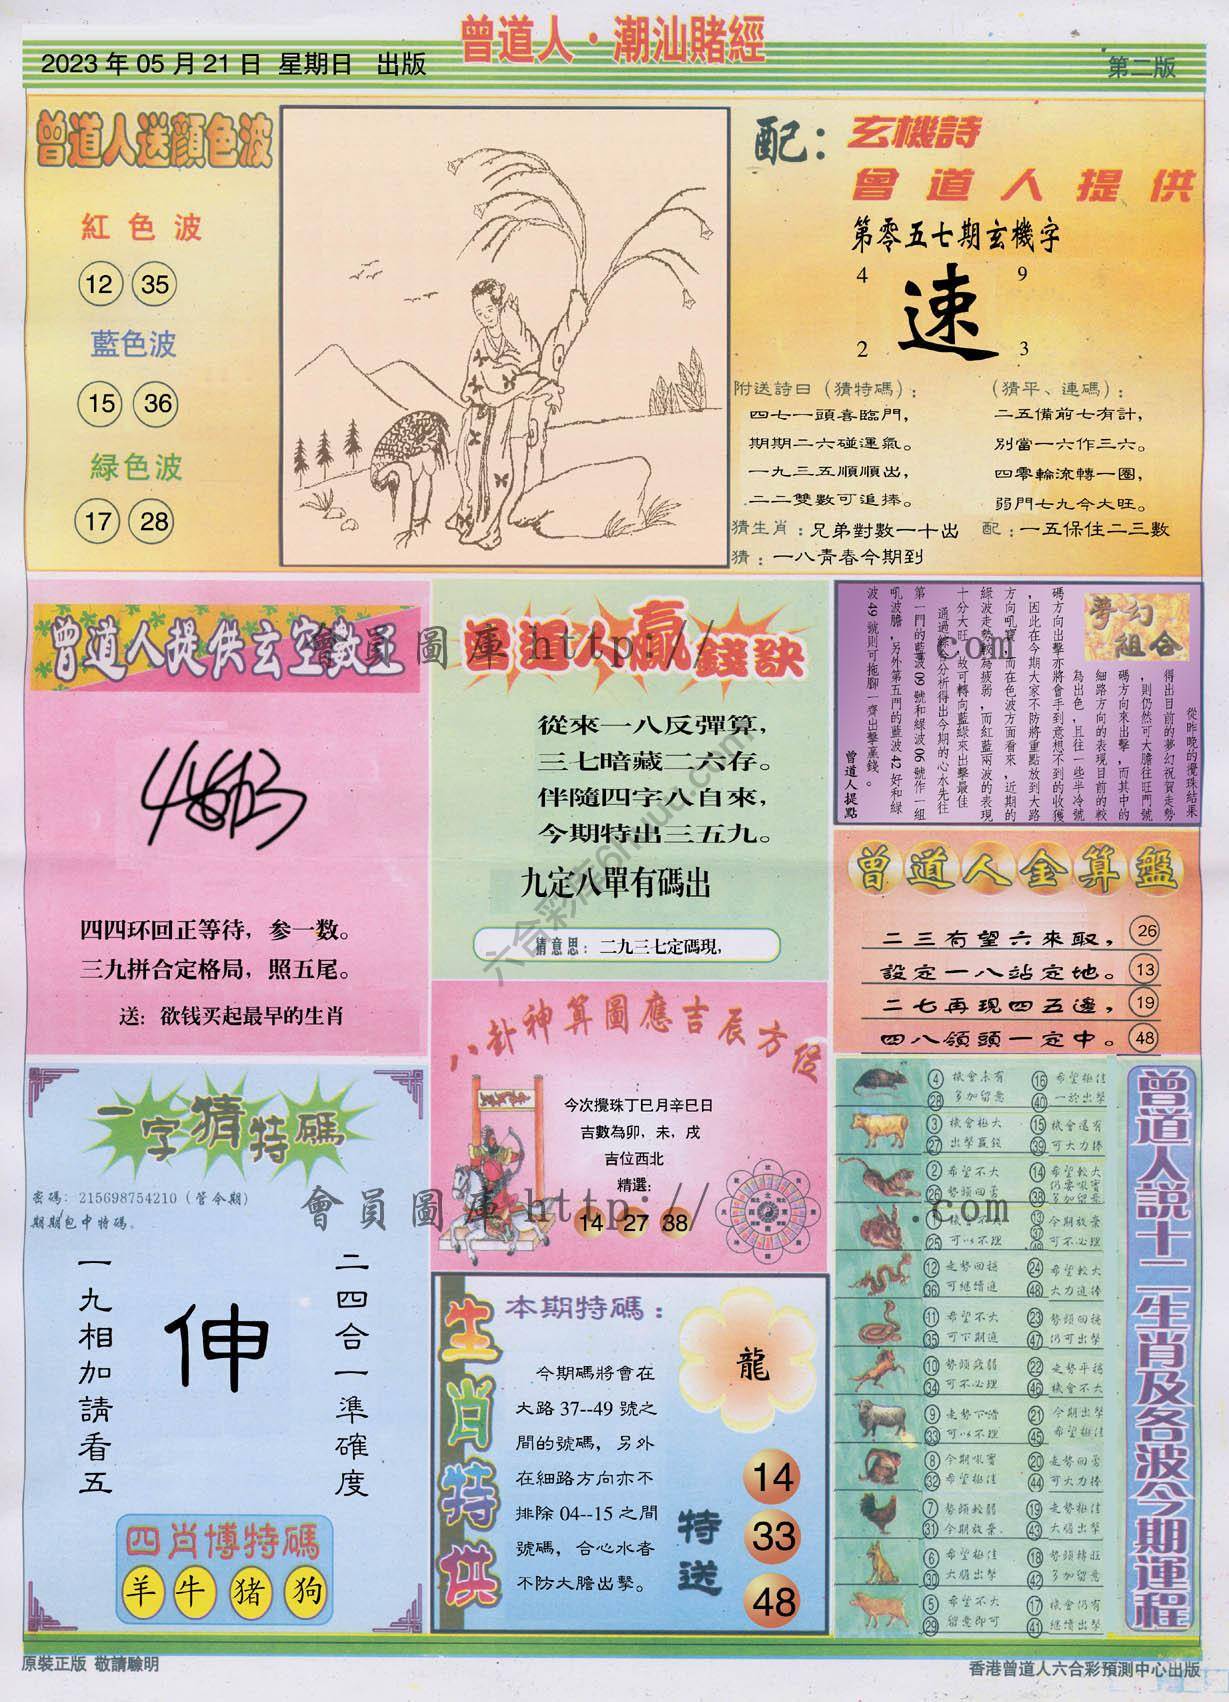 曾道人·潮汕賭經
2023 年 05 月 21 日 星期日 出版
第二版
曾道人送顏色波
紅色波
12 35
藍色波
15 36
綠色波
17 28
配：
玄機詩
曾道人提供
第零五七期玄機字
4 9
速
2 3
附送詩曰（猜特碼）：
四七一頭喜臨門，
期期二六碰運氣。
一九三五順順出，
二二雙數可追捧。
（猜平、連碼）：
二五備前七有計，
別當一六作三六。
四零輪流轉一圈，
弱門七九今大旺。
猜生肖：兄弟對數一十出
配：一五保住二三數
猜：一八青春今期到
曾道人提供玄空數王
四四环回正等待，参一数。
三九拼合定格局，照五尾。
送：欲钱买起最早的生肖
曾道人贏錢訣
從來一八反彈算，
三七暗藏二六存。
伴隨四字八自來，
今期特出三五九。
九定八單有碼出
猜意思：二九三七定碼現，
夢幻組合
從昨晚的攪珠結果
得出目前的夢幻祝賀走勢
，則仍然可大膽往旺門號
碼方向來出擊，而其中的
細路方向的表現目前的較
為出色，且往一些半冷號
碼方向出擊亦將會手到意想不到的收獲
，因此在今期大家不防將重點放到大路
方向吼寶，而在色波方面看來，近期的
綠波走勢較為疲弱，而紅藍兩波的表現
十分大旺，故可轉向藍綠來出擊最佳
通過綜合分析得出今期的心水先往
第一門的藍波 09 號和綠波 06 號作一組
吼波膽，另外第五門的藍波 42 好和綠
波 49 號則可拖腳一齊出擊贏錢。
曾道人提點
曾道人金算盤
二三有望六來取， 26
設定一八站定地。 13
二七再現四五邊， 19
四八領頭一定中。 48
八卦神算圖應吉辰方位
今次攪珠丁巳月辛巳日
吉數為卯，未，戌
吉位西北
精選：
14 27 38
一字猜特碼
密碼：215698754210（管今期）
期期包中特碼。
二四合一準確度
伸
一九相加請看五
四肖博特碼
羊 牛 猪 狗
生肖特供
本期特碼：
龍
今期碼將會在
大路 37--49 號之
間的號碼，另外
在細路方向亦不
排除 04--15 之間
號碼，合心水者
不防大膽出擊。
特送
14
33
48
曾道人說十二生肖及各波今期運程
4 28 機會未有 多加留意 16 40 希望極佳 一於出擊
3 27 機會極大 出擊贏錢 15 39 機會還有 可大力捧
2 26 希望不大 勢頭回勇 14 38 希望較大 仍要吼實 多加留意
1 25 機會不大 可以不理 13 37 49 今期放棄 可不必理
12 36 走勢回穩 可繼續追 24 48 希望較大 大力追捧
11 35 希望不大 可下期追 23 47 勢頭回穩 仍可出擊
10 34 勢頭疲弱 可不必理 22 46 走勢平穩 機會不大
9 33 走勢下滑 可以不理 21 45 今期出擊 希望極佳
8 32 今期吼實 希望極佳 20 44 走勢回勇 可大力捧
7 31 勢頭較弱 今期放棄. 19 43 走勢極佳 大膽出擊
6 30 希望極佳 大膽出擊 18 42 勢頭轉旺 多加留意
5 29 希望不大 留意即可 17 41 機會仍有 繼續出擊
會員圖庫 http:// .com
會員圖庫 http:// .com
原裝正版 敬請驗明
香港曾道人六合彩預測中心出版